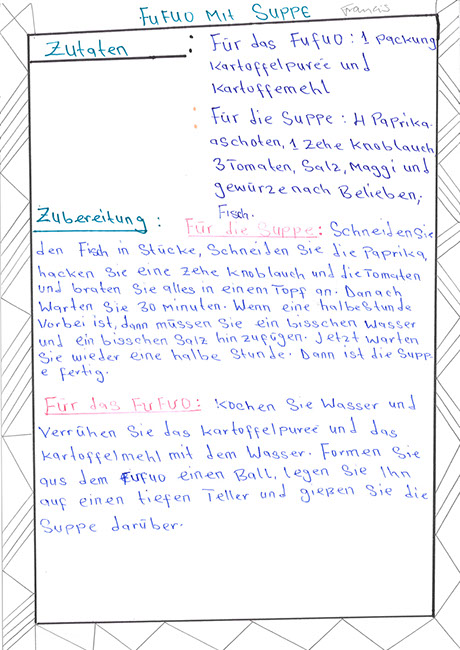 FUFUO MIT SUPPE Francis
Zutaten : Für das FUFUO : 1 packung
kartoffelpuree und
kartoffemehl
: Für die Suppe : 4 Paprika-
aschoten, 1 Zehe knoblauch
3 Tomaten, Salz, Maggi und
gewürze nach Belieben,
Fisch.
Zubereitung : Für die Suppe : Schneiden Sie
den Fisch in Stücke, Schneiden Sie die Paprika,
hacken Sie eine Zehe knoblauch und die Tomaten
und braten Sie alles in einem Topf an. Danach
warten Sie 30 minuten. Wenn eine halbe Stunde
Vorbei ist, dann müssen Sie ein bisschen wasser
und ein bisschen Salz hin zufügen. Jetzt warten
Sie wieder eine halbe Stunde. Dann ist die Supp
e fertig.
Für das FUFUO : kochen Sie Wasser und
Verrühen Sie das kartoffelpuree und das
kartoffelmehl mit dem Wasser. Formen Sie
aus dem FUFUO einen Ball, legen Sie Ihn
auf einen tiefen Teller und gießen Sie die
Suppe darüber.